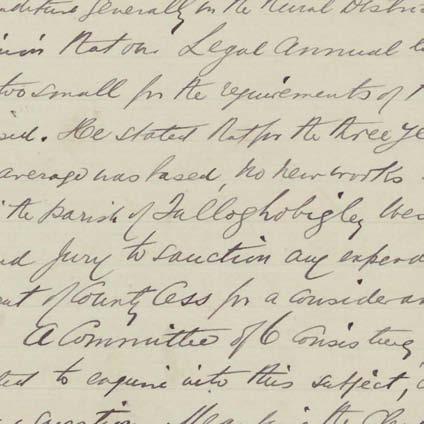 nditure generally in the Rural Distri
inion that our Legal Annual l
too small for the requirements of t
sed. He stated that for the three ye
average was based, no new works
the parish of Tulloghobigley wes
nd Jury to sanction any expend
ent of County Cess for a considera
A Committee of 6 consisting
ted to enquire into this subject,
question